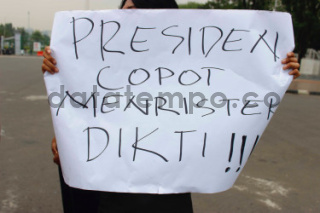 PRESIDEN
COPOT
MENRISTEK
DIKTI !!!
datatempo.co